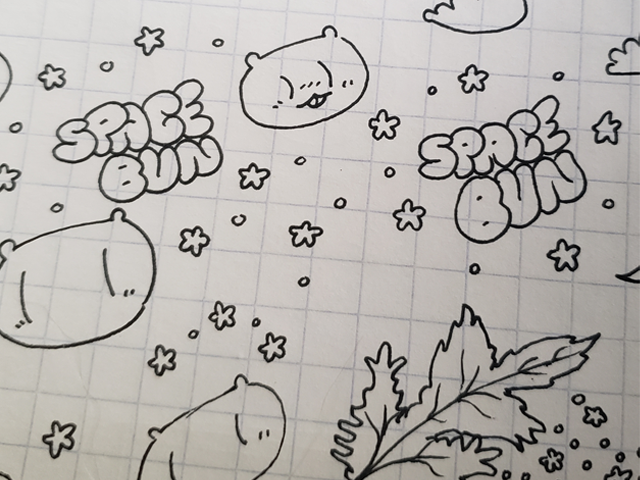 SPACE
BUN
SPACE
BUN